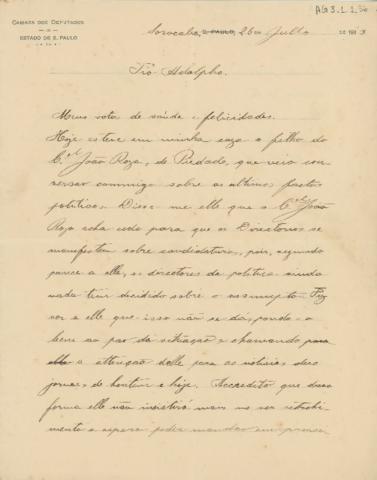 AG3.1.1.
CAMARA DOS DEPUTADOS
DO
ESTADO DE S. PAULO
Sorocaba, S. PAULO, 26 de Julho DE 1913
Tio Adolpho.
Meus votos de saúde e felicidades.
Hoje esteve em minha casa o filho do
Cel João Roza, de Piedade, que veio con-
versar commigo sobre os ultimos factos
politicos. Disse-me elle que o Cel João
Roza acha cedo para que os Directorios se
manifestem sobre candidaturas, pois, segundo
parece a elle, os directores da politica ainda
nada tem decidido sobre o assumpto. Fiz
ver a elle que isso não se dá, pondo-o
bem ao par da situação e chamando para
a attenção delle para as noticias dos
jornaes de hontem e hoje. Accredito que dessa
forma elle não insistirá mais no seu retrahi-
mento e espero poder mandar em